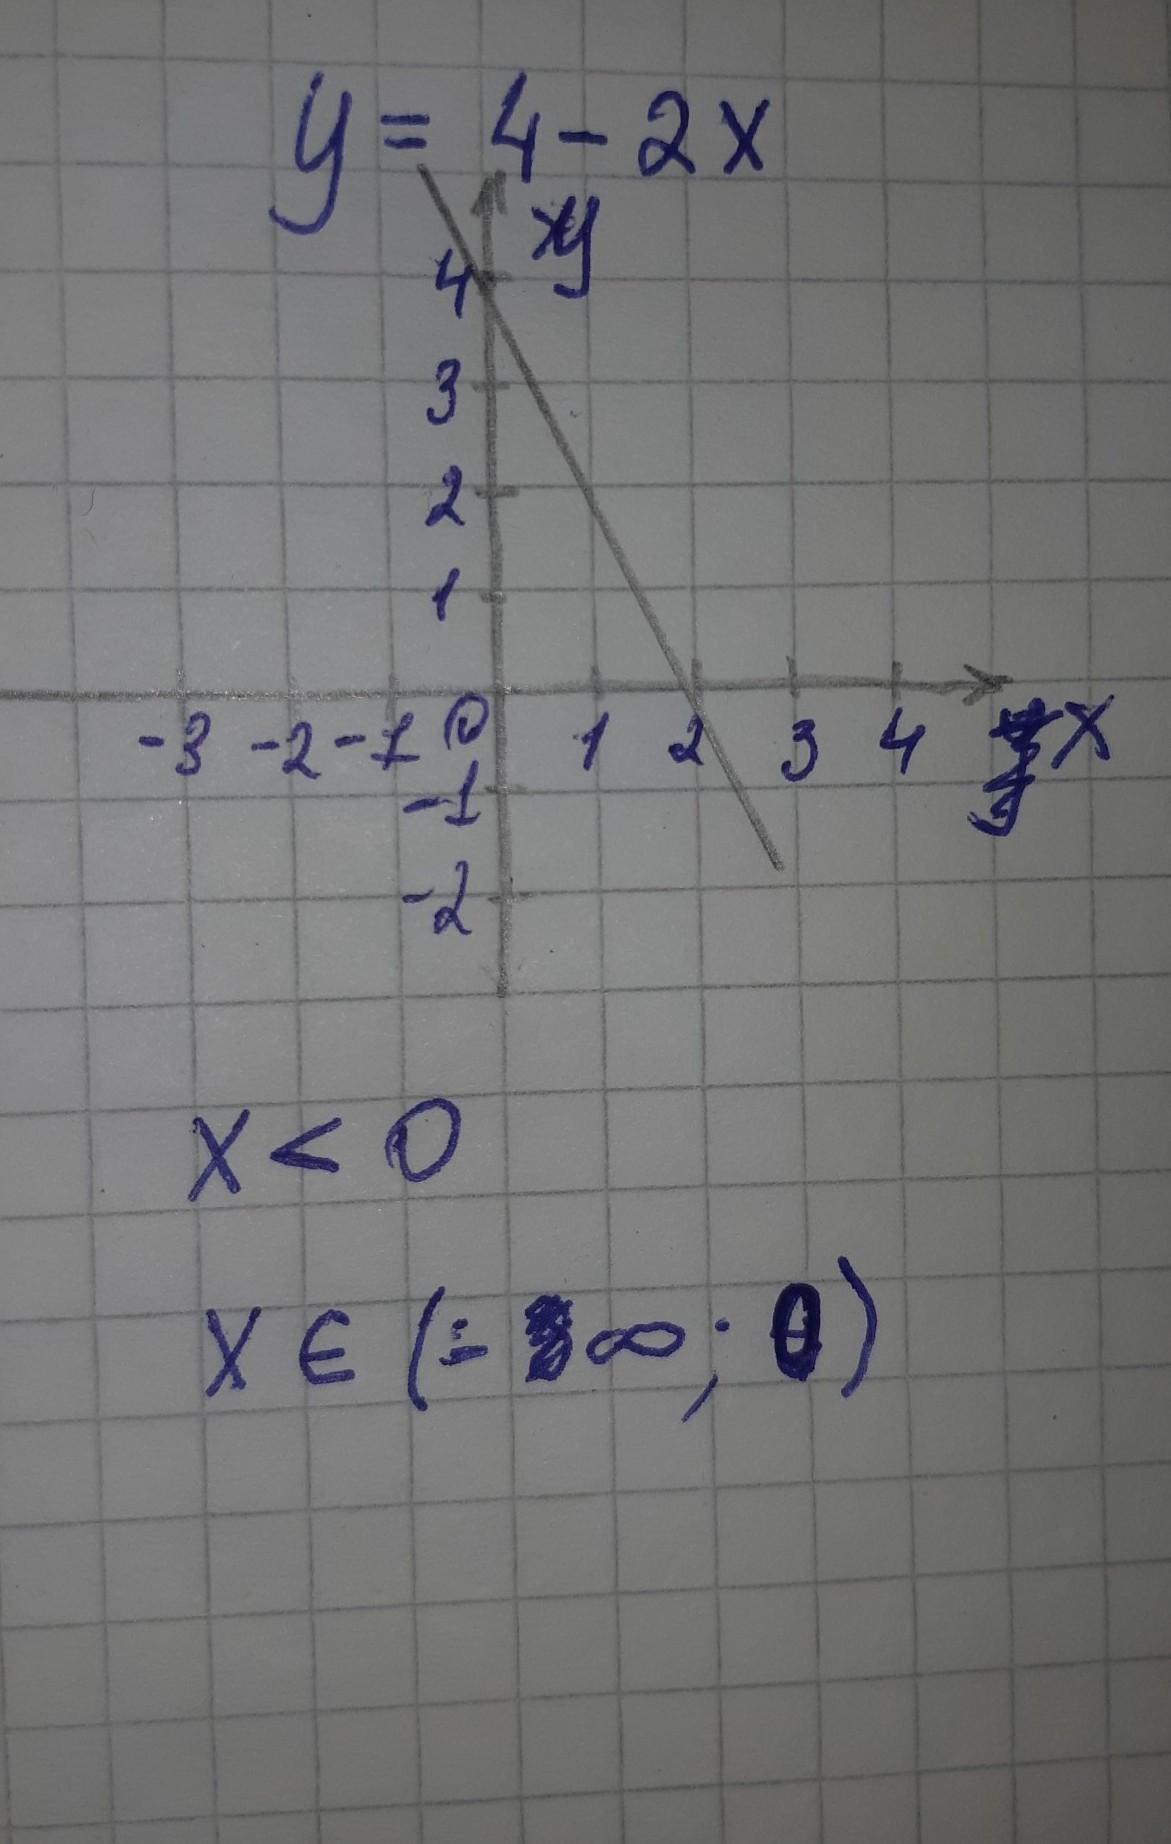 y = 4 - 2x
y
4
3
2
1
-3 -2 -1 0 1 2 3 4 x
-1
-2
x < 0
x ∈ (-∞; 0)